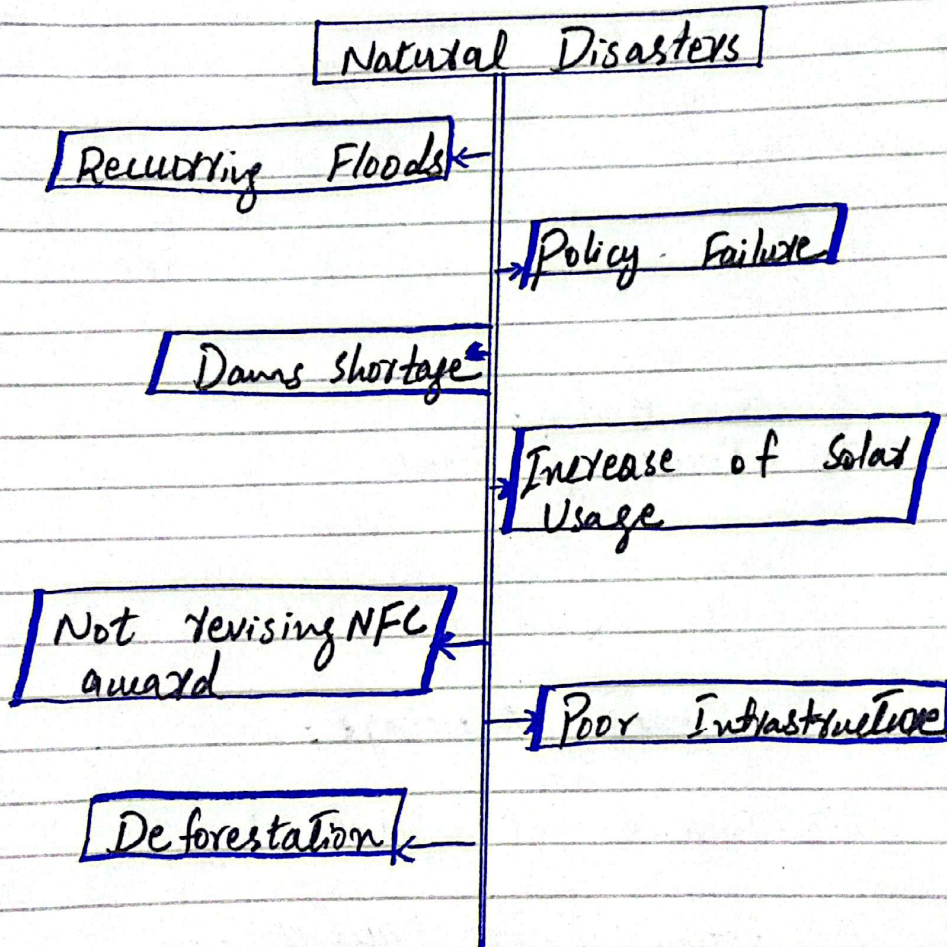 Natural Disasters
Recurring Floods
Policy Failure
Dams shortage
Increase of Solar
Usage
Not revising NFC
award
Poor Infrastructure
Deforestation